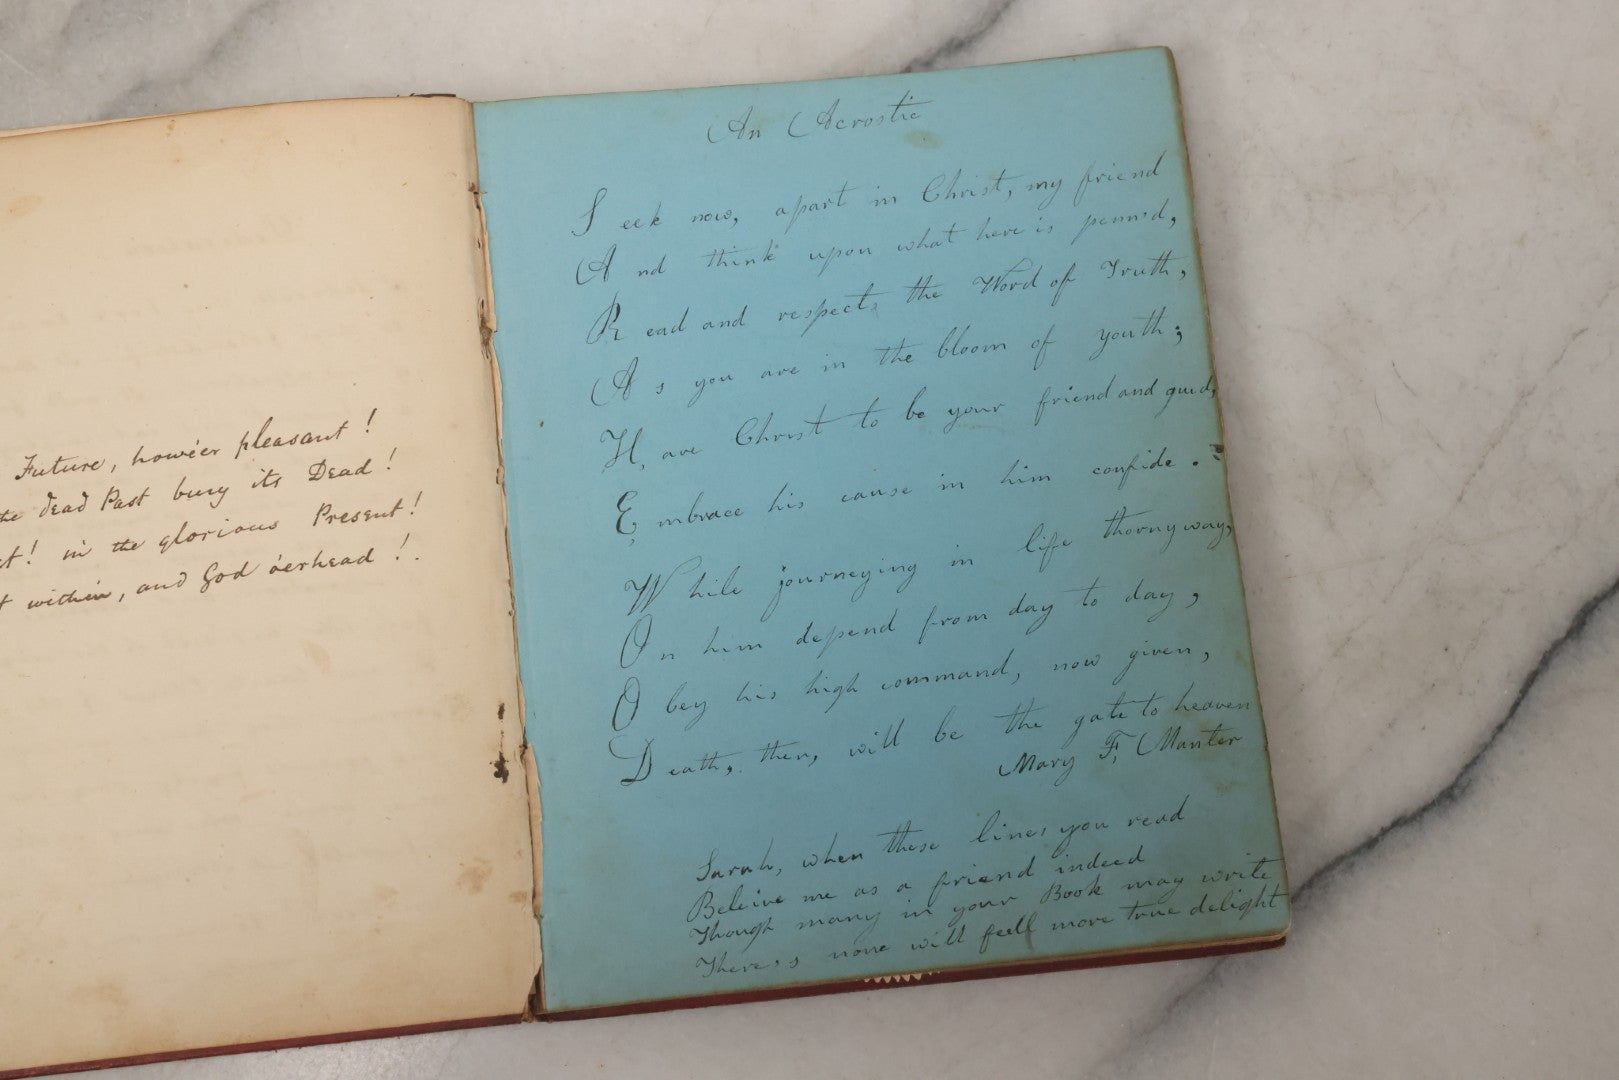 Future, howe'er pleasant!
the dead Past bury its Dead!
in the glorious Present!
within, and God o'erhead!.
An Acrostic
S eek now, apart in Christ, my friend
A nd think upon what here is penn'd,
R ead and respects the Word of Truth,
A s you are in the bloom of youth;
H, ave Christ to be your friend and guid,
E, mbrace his cause in him confide.
W hile journeying in life thorny way,
O n him depend from day to day,
O bey his high command, now given,
D eath, then, will be the gate to heaven
Mary F, Manter
Sarah, when these lines you read
Beleive me as a friend indeed
Though many in your Book may write
There,s none will feell more true delight